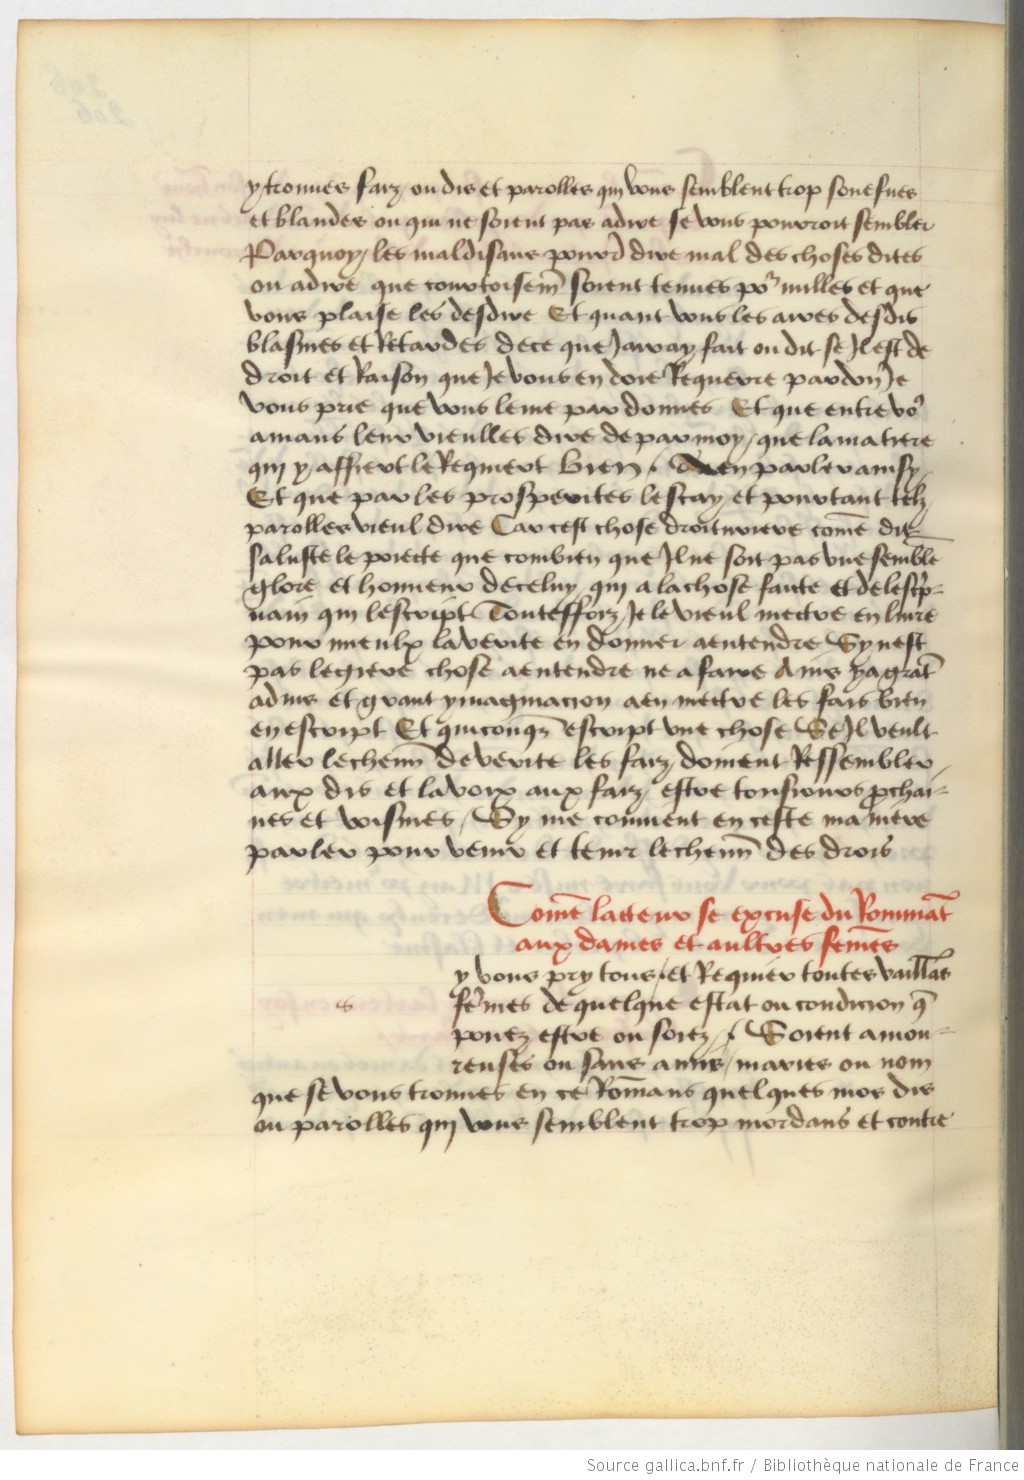 y trouues faiz / ou dis et parolles qui vous semblent trop souefues
et blandes ou qui ne soient pas adire se vous pourroit sembler
Parquoy / les maldisans pourrō dire mal des choses dites
ou adire que courtoisemt̄ soient tenues por nulles et que
vous plaise les desdire Et quant vous les aires desdis
blasmes et Retardes de ce que Jauray fait ou dit se Jl est de
droit et Raison que Je vous en doie Requerre pardon Je
vous prie que vous le me pardonnes Et que entre vos
amans leur vieulles dire de par moy / que la matiere
qui y affiert le Requiert bien / den parler ainsy
Et que par les prosperites le scay et pourtant telz
parolles vieul dire Car cest chose droituriere com̄e dit
saluste le poiette que combien que Jl ne soit pas vne semble
glore et honneur de celuy qui a la chose faite et de lescrip-
uain qui lescript Toutesfoiz / Je le vieul mettre en liure
pour mieulx la verite en donner a entendre Sy nest
pas legiere chose a entendre ne a faire Ains ya grant̄
aduis et grant ymaginacion a en mettre les fais bien
en escript Et quiconq̄s escript vne chose Se Jl veult
aller le chemī de verite les faiz / doiuent Ressembler
aux dis et la voix aux faiz / estre tousiours ꝓchai-
nes et voisines / Sy me conuient en ceste maniere
parler pour venir et tenir le chemī des drois
Com̄e lacteur se excuse du Rommāt
aux dames et aultres fem̄es
y vous pry tous / et Requier toutes vaillās
s
fem̄es de quelque estat ou condicion q̄
pouez estre ou soiez / Soient amou-
reuses ou sans amis / maries ou nom
que se vous trouues en ce Rom̄ans quelques mos dis
ou parolles qui vous semblent trop mordans et contre
Source gallica.bnf.fr / Bibliothèque nationale de France